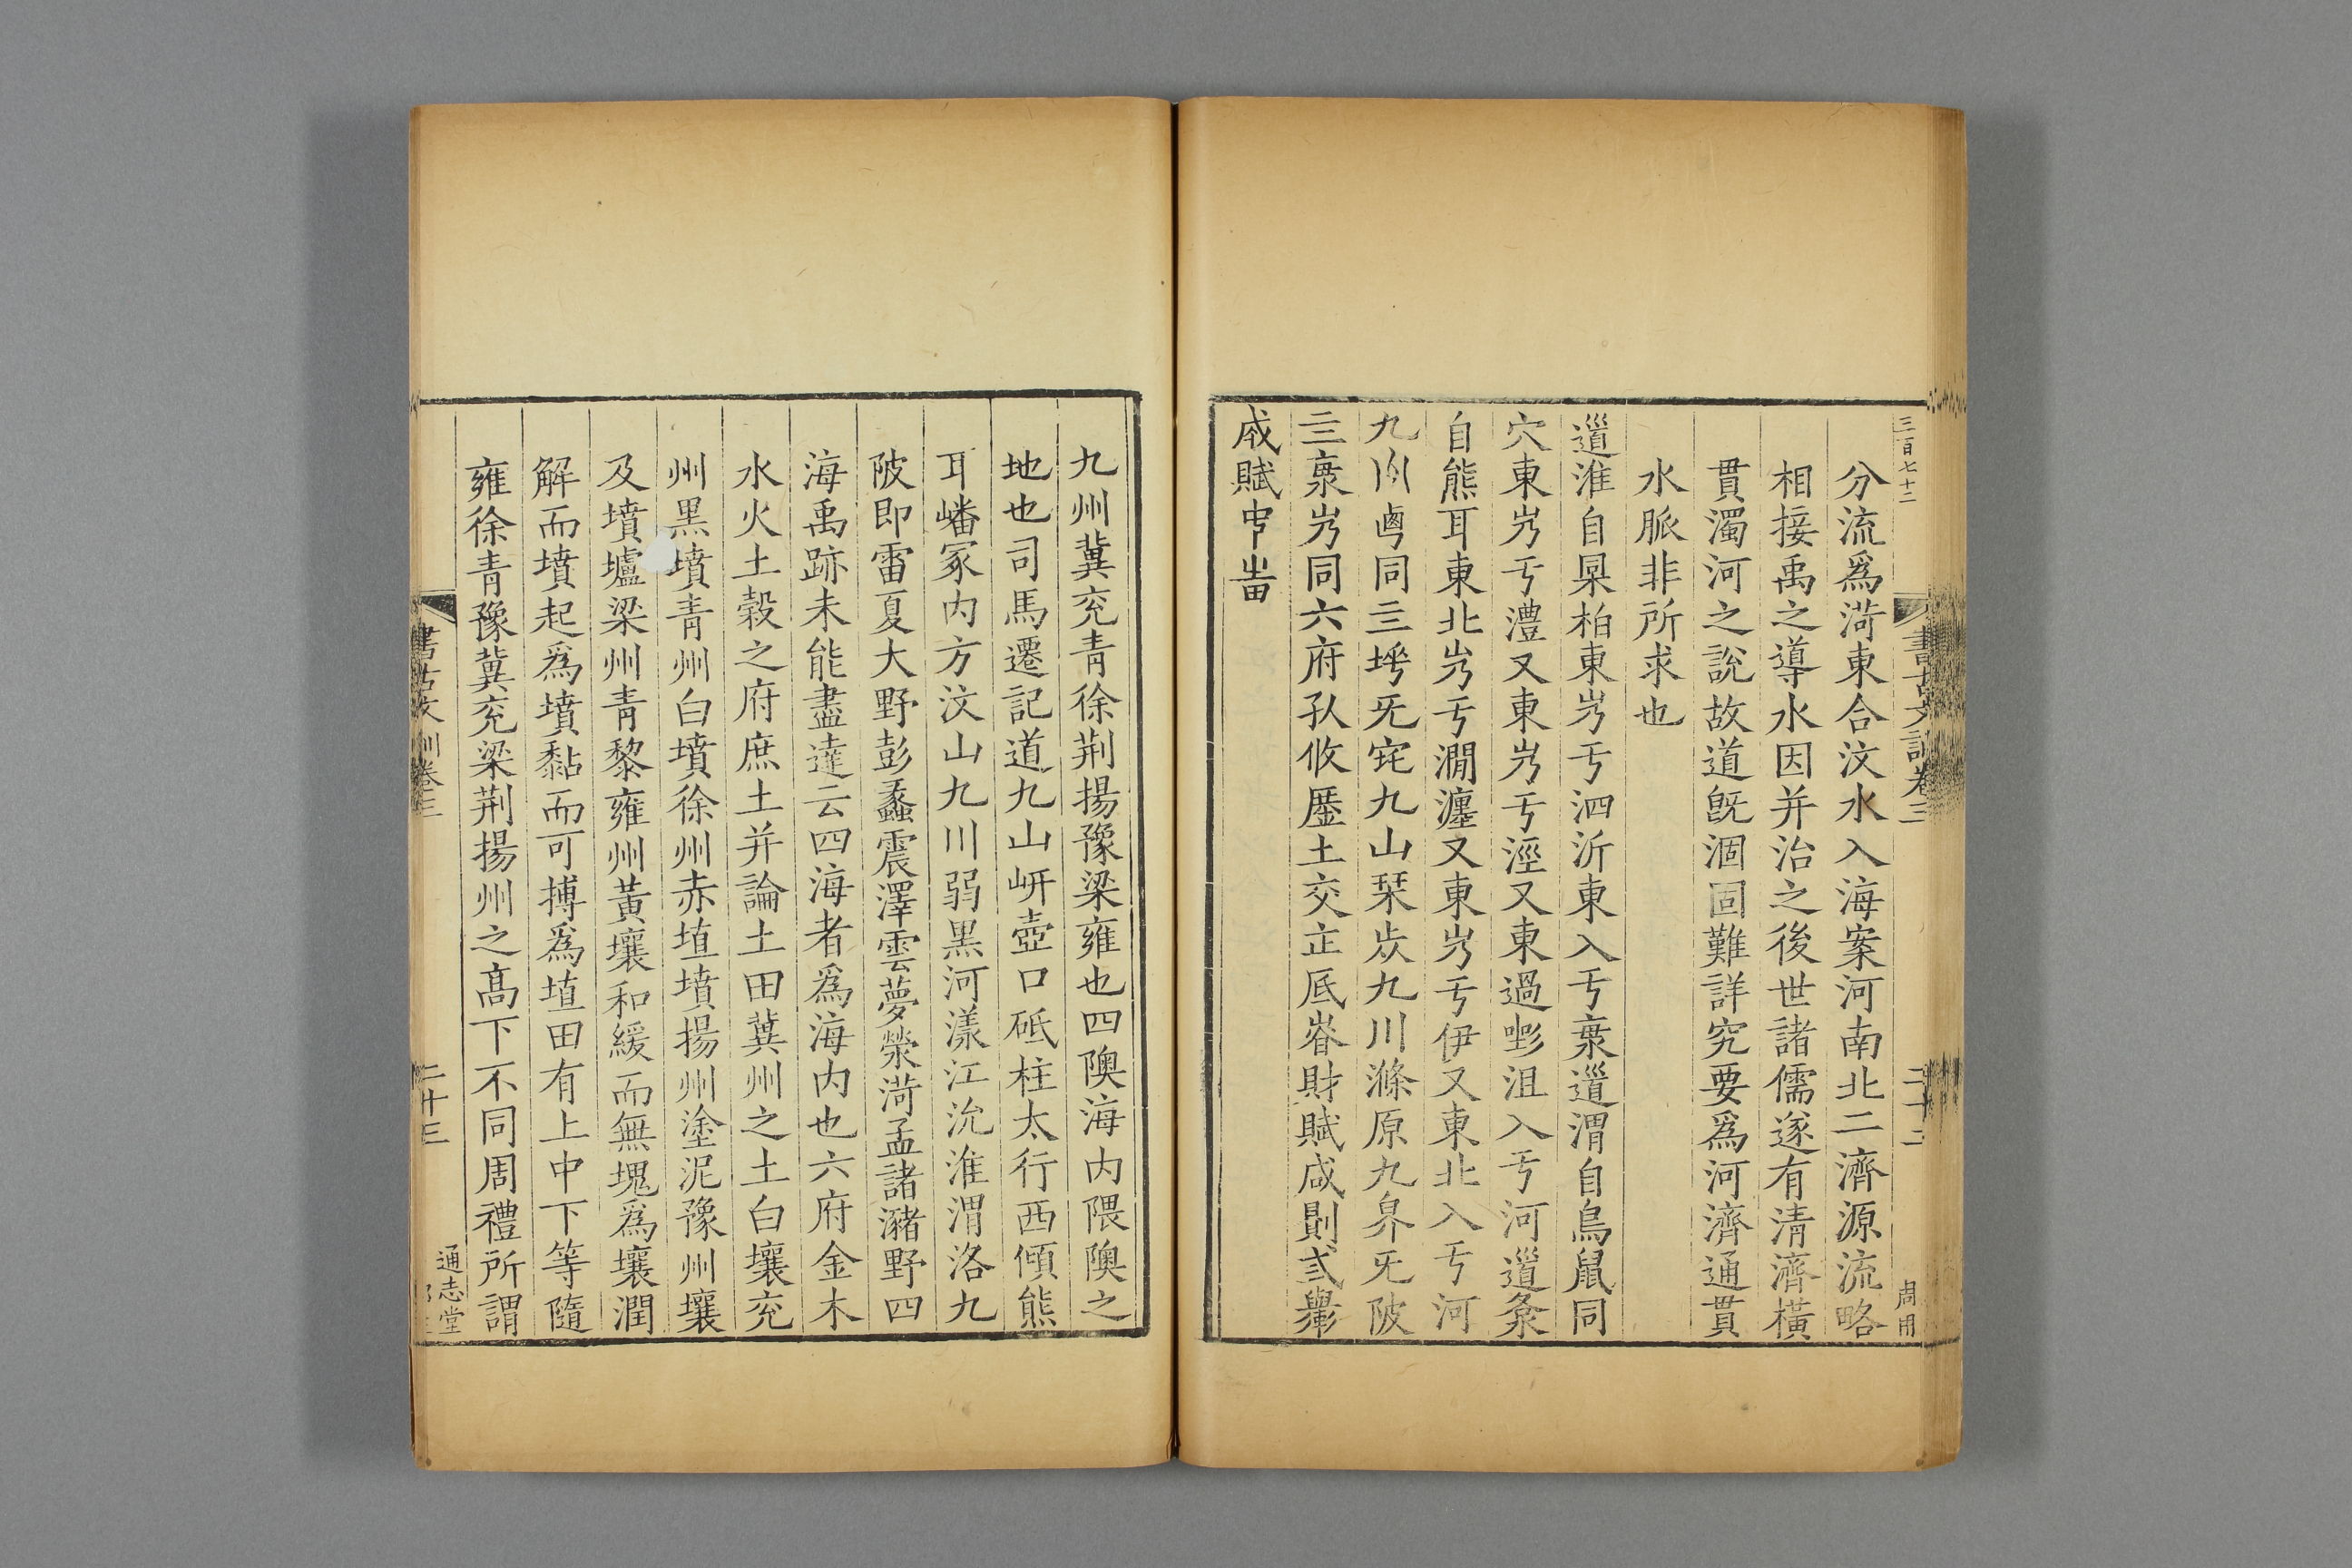 三百七十二
書古文訓卷三
二十二
周用
分流爲菏東合汶水入海案河南北二濟源流略
相接禹之導水因并治之後世諸儒遂有清濟横
貫濁河之説故道旣涸固難詳究要爲河濟通貫
水脈非所求也
𨗓淮自㫧柏東岁亐泗沂東入亐𣳠𨗓渭自鳥鼠同
穴東岁亐灃又東岁亐涇又東過㓼沮入亐河𨗓𣴑
自熊耳東北岁亐澗瀍又東岁亐伊又東北入亐河
九州卣同三㙑旡宅九山栞㞷九川滌原九㚖旡陂
三𣳠岁同六府孔攸𡒉土交㱏厎昚財賦咸𠟭弎㘽
成賦中𡿧
九州冀兖青徐荆揚豫梁雍也四隩海内隈隩之
地也司馬遷記道九山岍壺口砥柱太行西傾熊
耳嶓冢内方汶山九川弱黑河漾江沇淮渭洛九
陂即雷夏大野彭蠡震澤雲夢滎菏孟諸瀦野四
海禹跡未能盡達云四海者爲海内也六府金木
水火土穀之府庶土并論土田冀州之土白壤兖
州黑墳青州白墳徐州赤埴墳揚州塗泥豫州壤
及墳壚梁州青黎雍州黃壤和緩而無塊爲壤潤
解而墳起爲墳黏而可摶爲埴田有上中下等隨
雍徐青豫冀兖梁荆揚州之高下不同周禮所謂
書古文訓卷三
二十三
通志堂